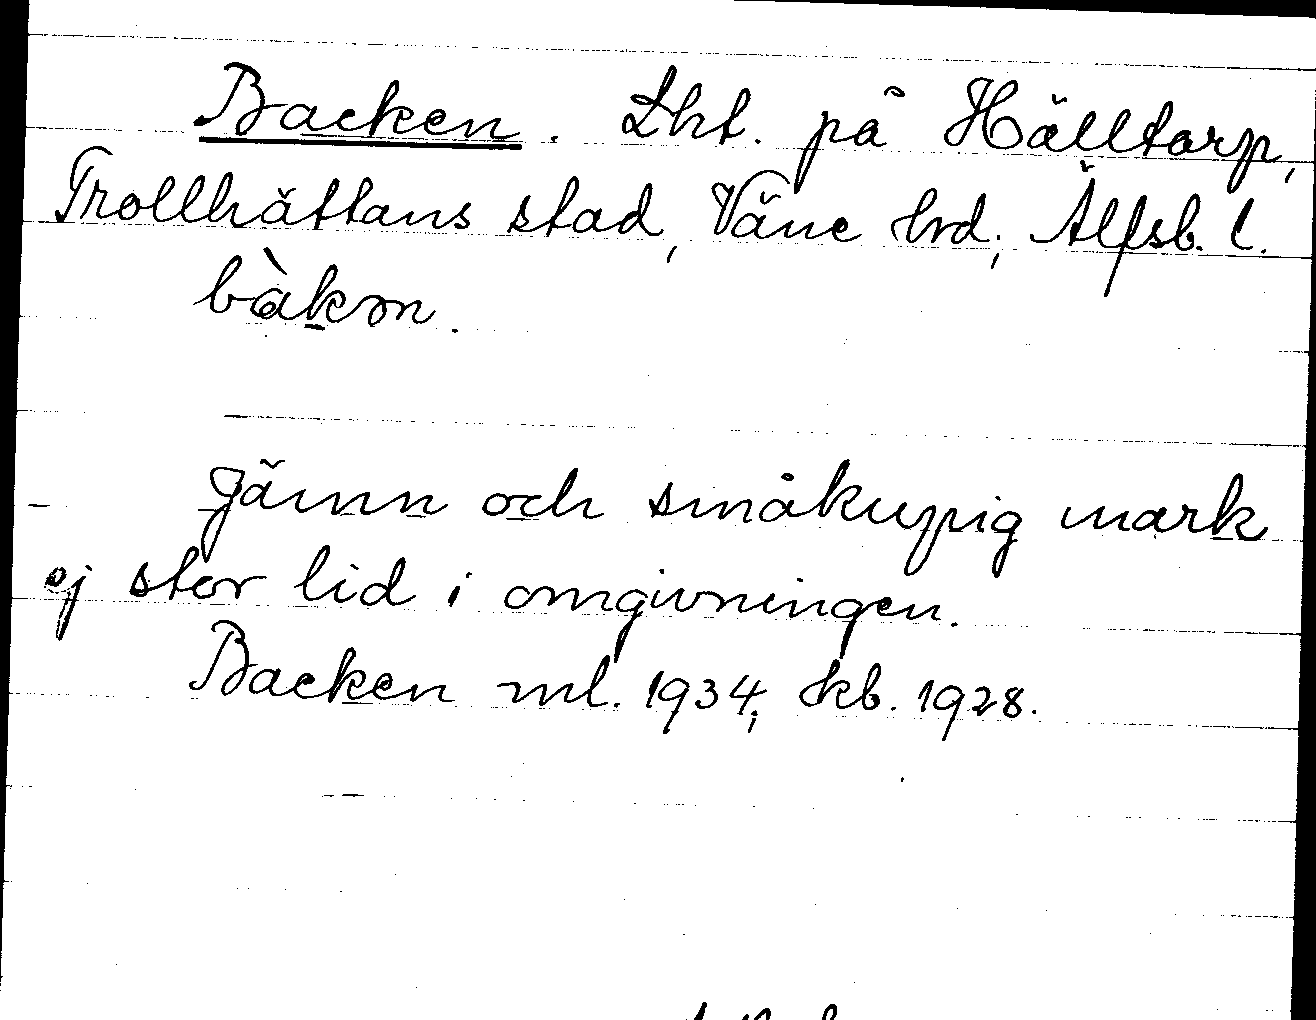 Backen. Lht. på Hälltorp,
Trollhättans stad, Väne hrd, Älfsb. l.
bàkən.
Jämn och småkuppig mark
ej stor lid i omgivningen.
Backen ml. 1934; kb. 1928.